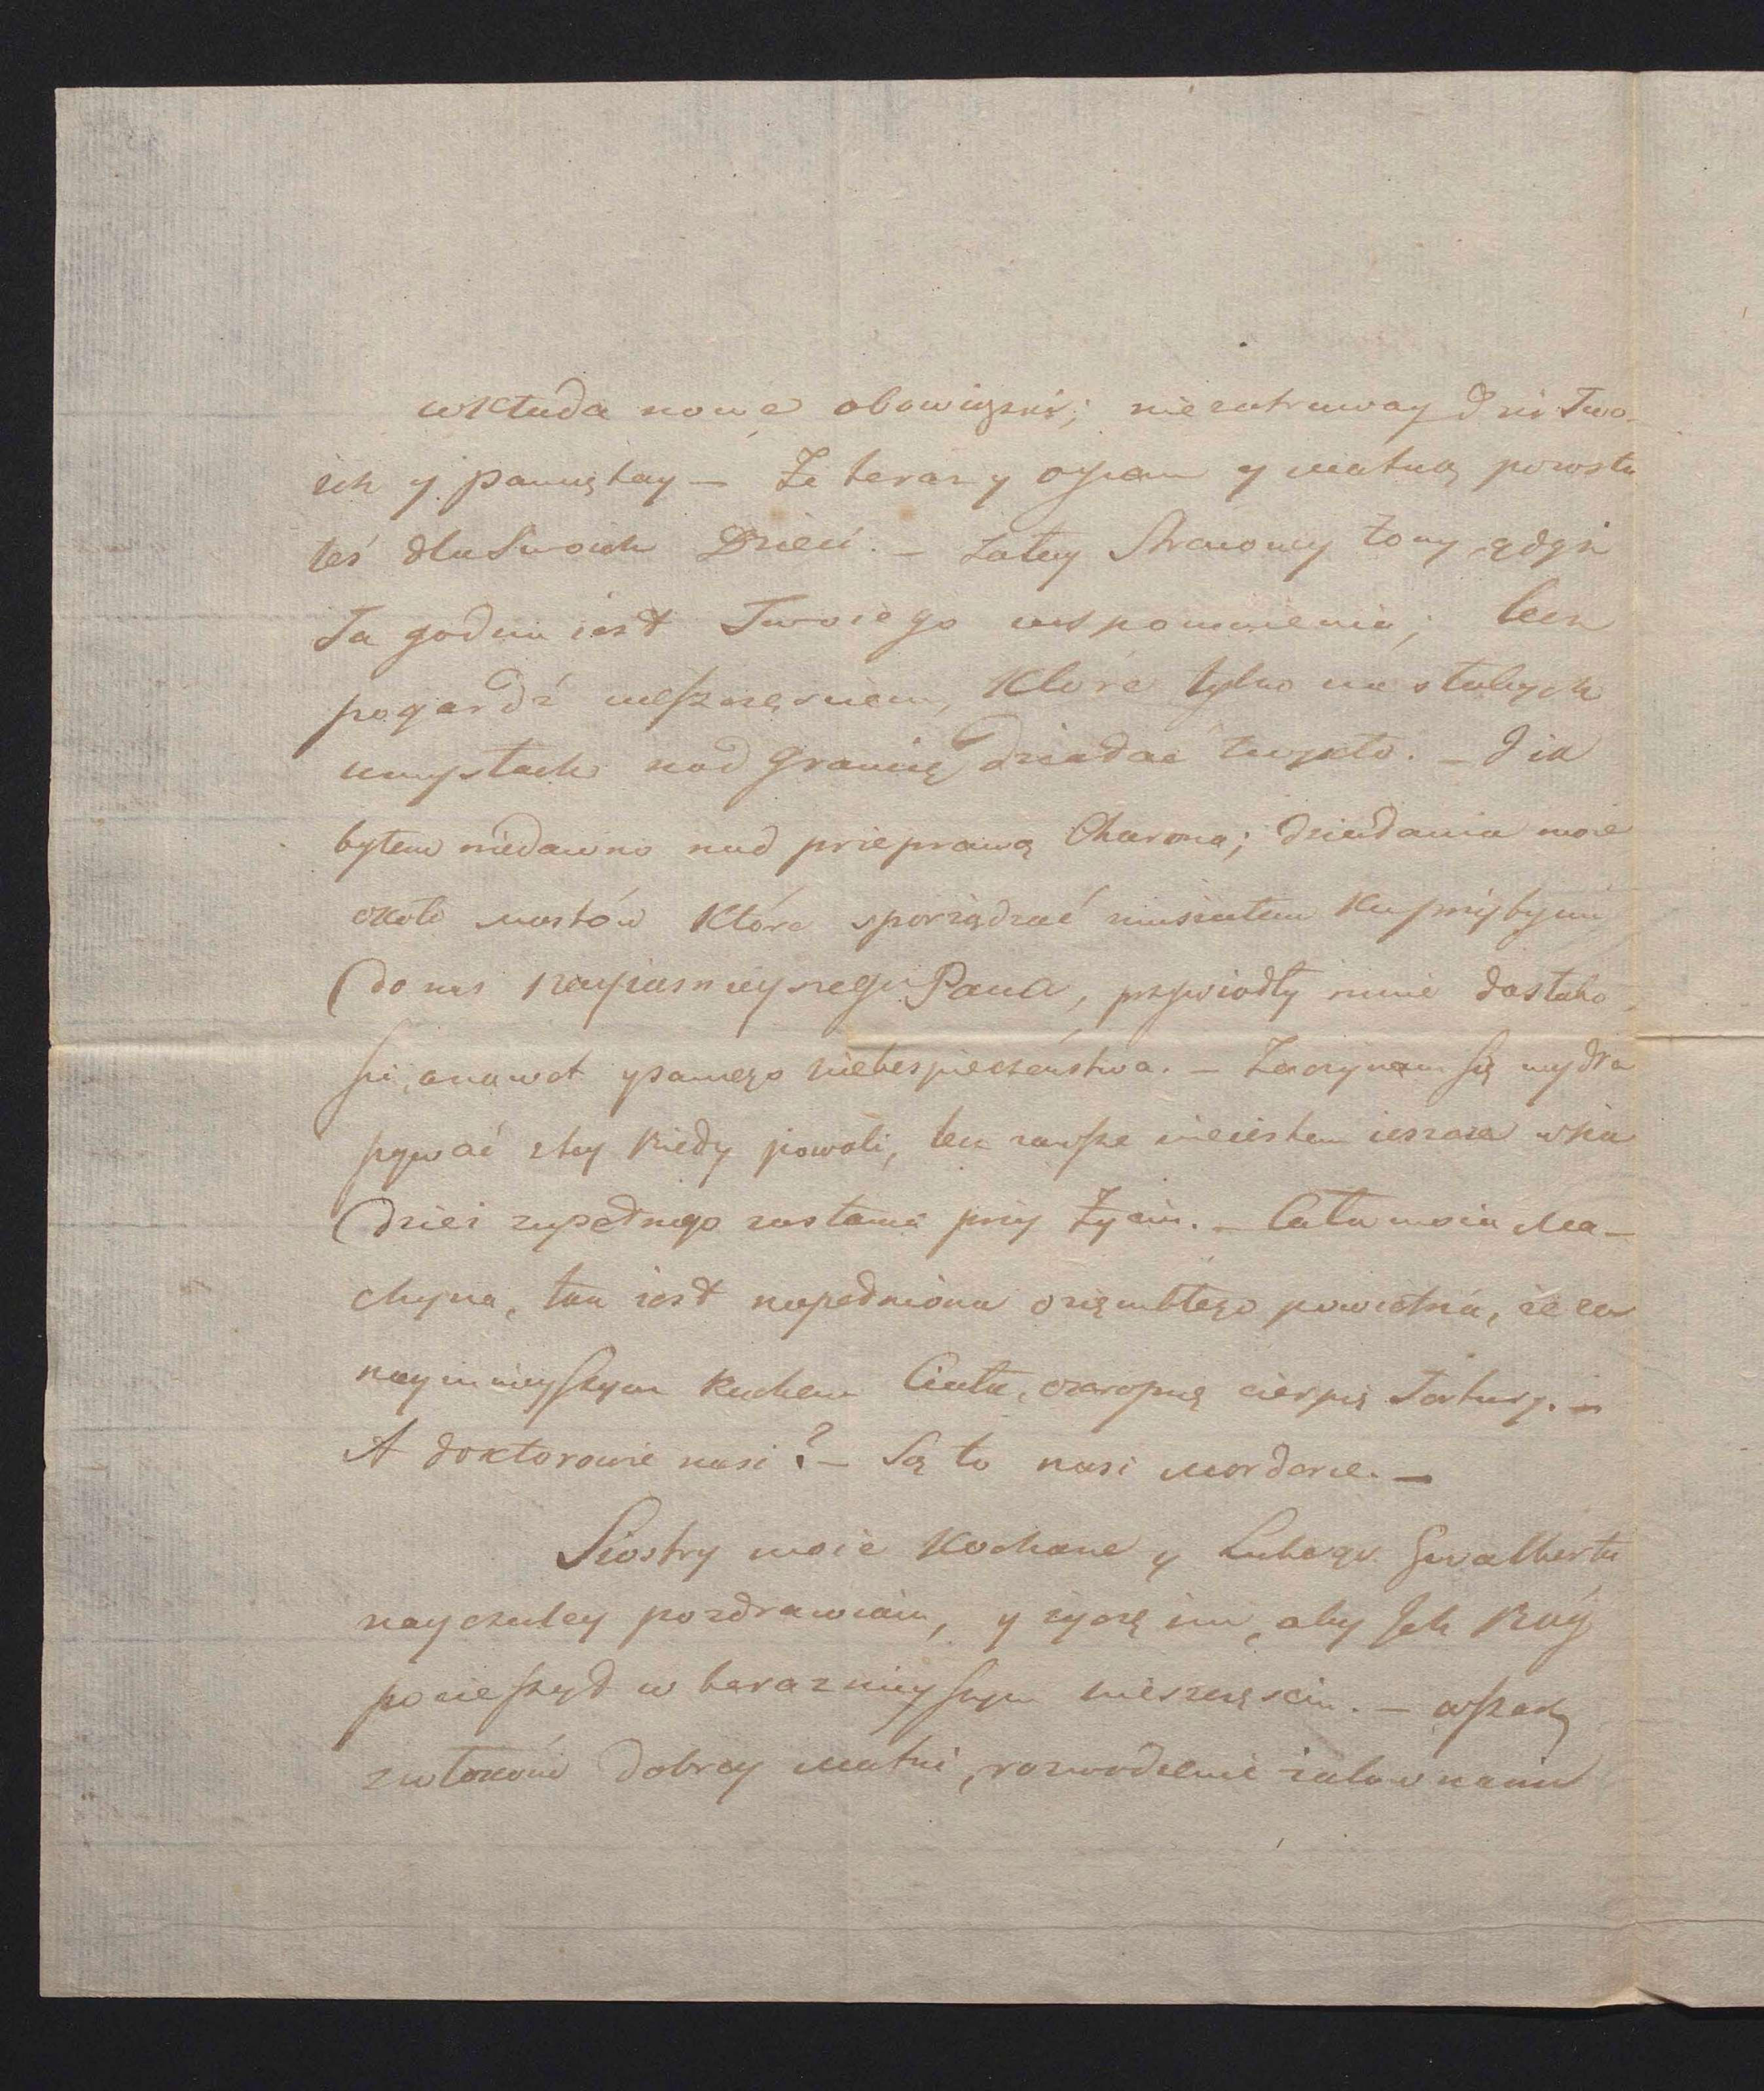 wkłada nowe obowiązki; niezatruway dni Two-
ich y pamiętay — Że teraz y oycem y matką powsta
łeś dla Swoich Dzieci. — żałuy Straconey żony, gdyż
Ta godna iest Twoiego wspomnienia; lecz
pogardź nieszczęściem, które tylko na słabych
umysłach nad granicę działać zwykło. — I ia
byłem niedawno nad przeprawą Charona; działania moie
około mostów które sporządzać musiałem ku przybyciu
do nas Nayiaśnieyszego Pana, przywiodły mnie do słabo
ści, a nawet y samego niebespieczeństwa. — Zaczynam się wydra
pywać z tey biedy powoli, lecz zawsze nieiestem ieszcze w na
dziei zupełnego zostania przy życiu. — Cała moia Ma-
chyna, tak iest napełniona oziembłego powietrza, że za
naymnieyszym Ruchem Ciała, okropnę cierpię Tortury. —
A doktorowie nasi? — Są to nasi mordercе. —
Siostry moie Kochane y Lubego Gwalberta
nayczuley pozdrawiam, y życzę im, aby Ich Bóg
pocieszył w teraznieyszym nieszczęściu. — wszak
zwłokom dobrey matki,